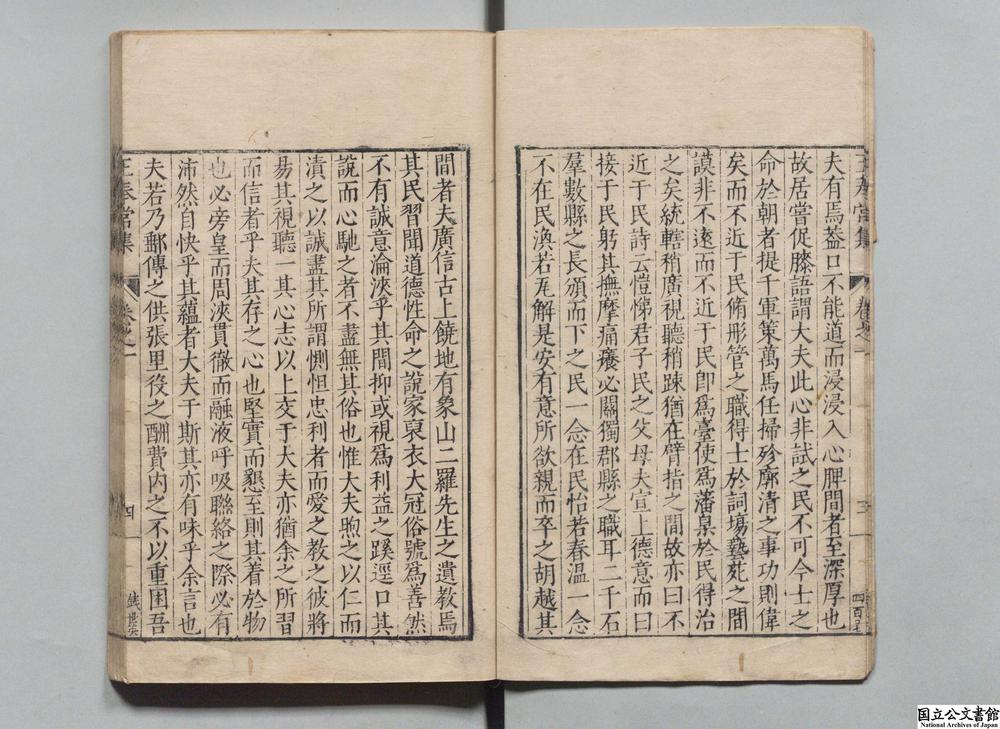 夫有焉葢口不能道而浸浸入心脾間者至深厚也
故居嘗促膝語謂大夫此心非試之民不可今士之
命於朝者提千軍策萬馬任掃殄廓清之事功則偉
矣而不近于民脩彤管之職得士於詞塲藝苑之間
謨非不遠而不近于民卽爲臺使爲藩臬於民得治
之矣統轄稍廣視聽稍踈猶在臂指之間故亦曰不
近于民詩云愷悌君子民之父母夫宣上德意而曰
接于民躬其撫摩痛癢必關獨郡縣之職耳二千石
羣數縣之長頒而下之民一念在民怡若春溫一念
不在民渙若瓦解是安有意所欲親而卒之胡越其
王奉常集 卷之一 三 四百七
間者夫廣信古上饒地有象山二羅先生之遺教焉
其民習聞道德性命之說家裒衣大冠俗號爲善然
不有誠意淪浹乎其間抑或視爲利益之蹊逕口其
說而心馳之者不盡無其俗也惟大夫煦之以仁而
漬之以誠盡其所謂惻怛忠利者而愛之教之彼將
昜其視聽一其心志以上交于大夫亦猶余之所習
而信者乎夫其存之心也堅實而懇至則其着於物
也必旁皇而周浹貫徹而融液呼吸聯絡之際必有
沛然自快乎其蘊者大夫于斯其亦有味乎余言也
夫若乃郵傳之供張里役之酬費內之不以重困吾
王奉常集 卷之一 四
国立公文書館
National Archives of Japan